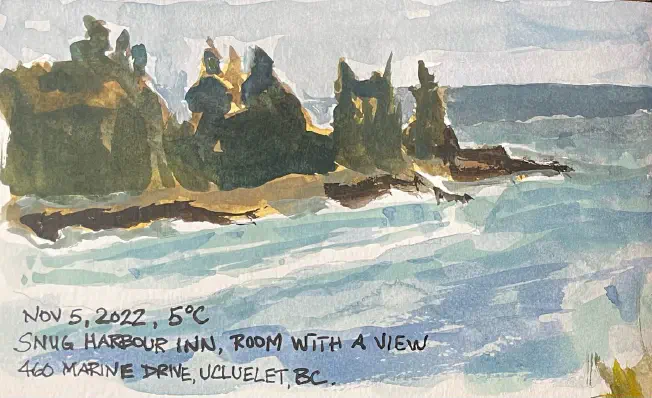 NOV 5, 2022, 5°C
SNUG HARBOUR INN, ROOM WITH A VIEW
460 MARINE DRIVE, UCLUELET, BC.